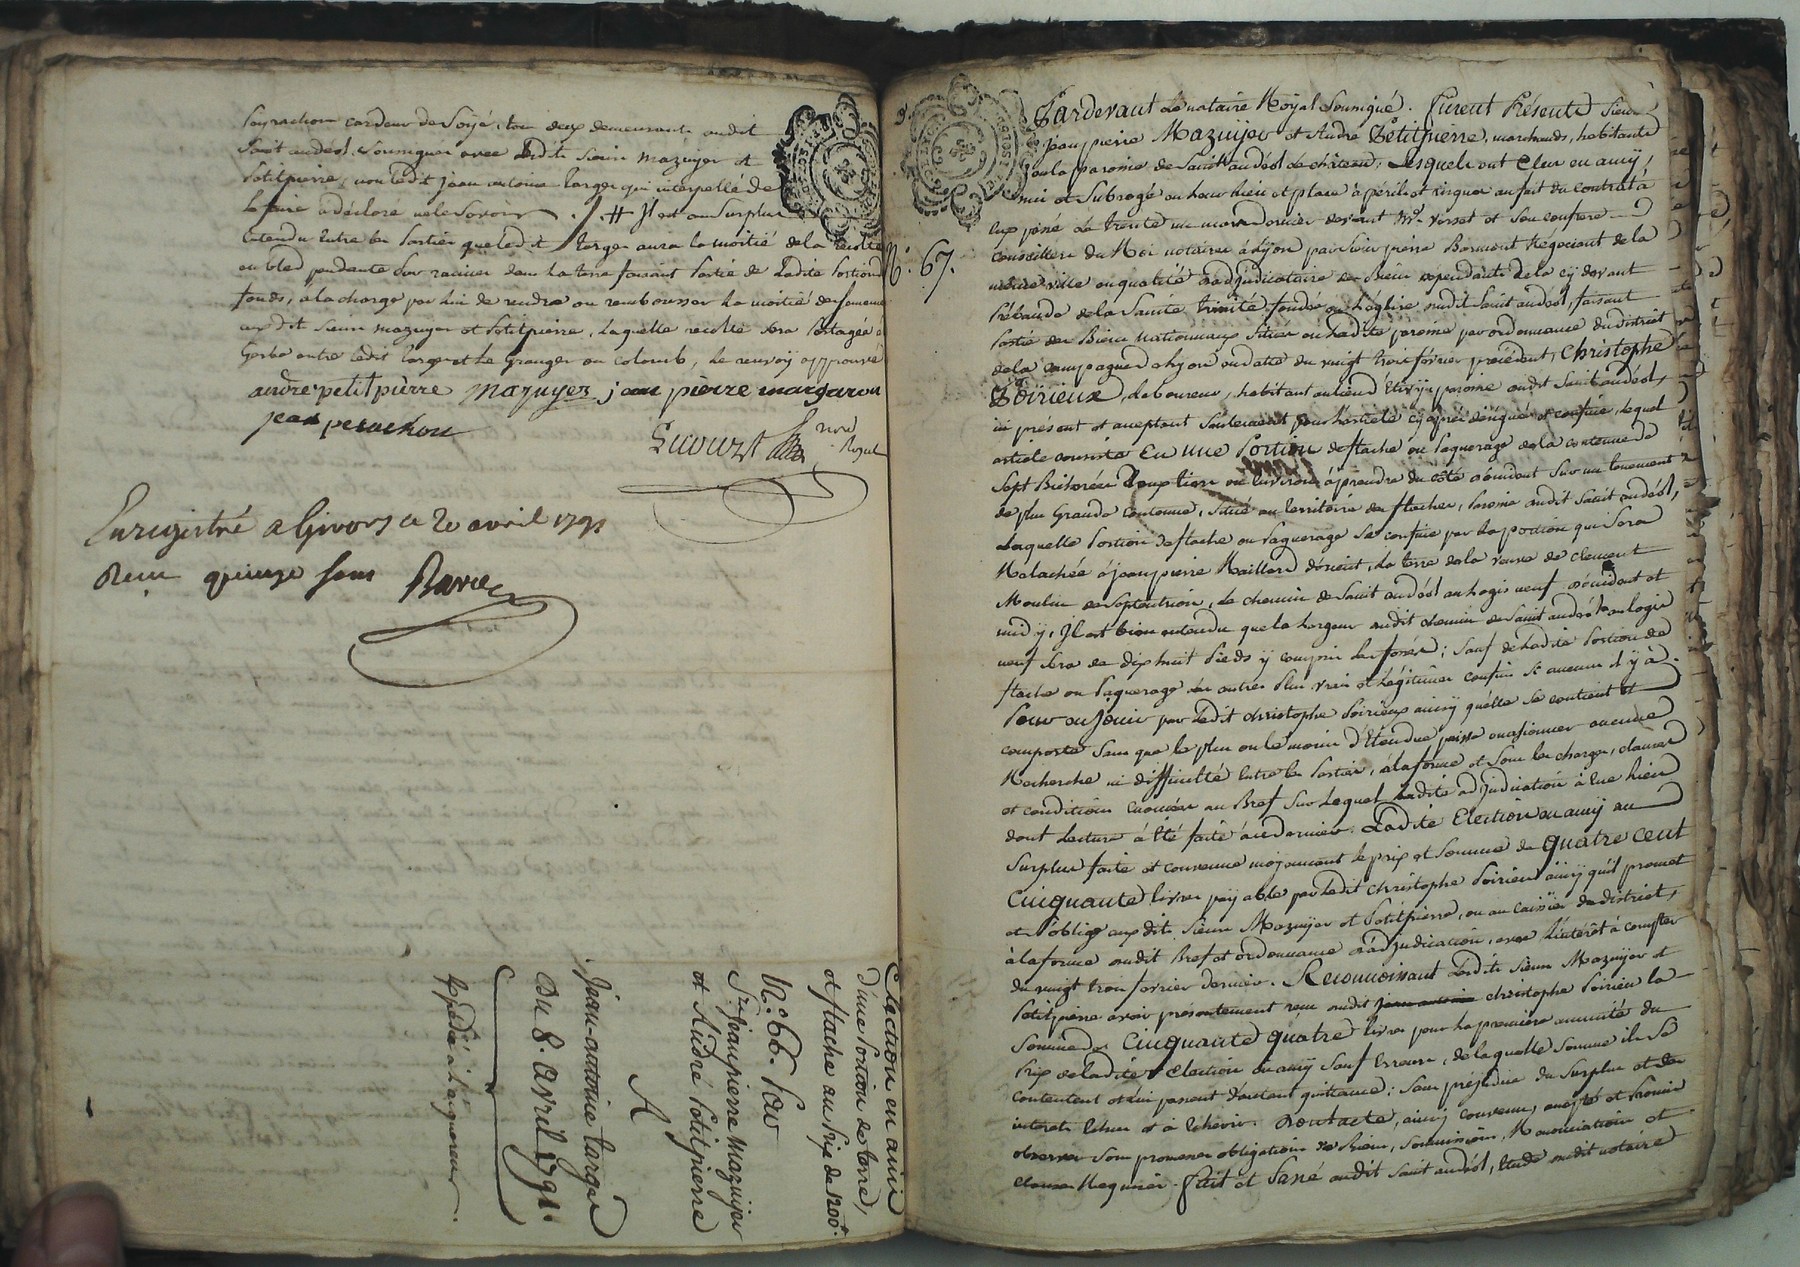 payrachon cardeur de Soye, tou deux demeurants audit
Saint andéol. Soussignés avec Lesdits Sieurs mazuyer et
Petitpierre, non Ledit jean antoine Larger qui interpellé de
le faire a déclaré ne le Savoir ./. # Il est au Surplus
Entendu Entre les Parties que Ledit Larger aura la moitié de la recolte
en bled pendante Par racines dans la terre faisant Partie de Ladite Portion
fonds, à la charge par lui de rendre ou rembourser la moitié des semences
aux dits Sieurs mazuyer et Petitpierre, Laquelle recolte sera Partagée à
Gerbe entre ledit Larger et Le Granger ou Colomb, le renvoy approuvé
andre petit pièrre Mazuyer jean pièrre margaron
jean perachon
Ecourt
nore
Royal
Enregistré a Givors ce 20 avril 1791
Recu quinze sous Ravier
Election en amie
d'une Portion de terre,
et flache au Prix de 1200#.
N.° 66. Pour
S.rs jeanpierre Mazuijer
et André Petitpierre
A
Jean-antoine Larger
Du 8. avril 1791.
Expédié à l'acquereur.
Pardevant Le notaire Royal Soussigné. Furent Présents Sieurs
jean pierre Mazuijer et André Petitpierre, marchands, habitants
Dans la paroisse de Saint andéol le château, Lesquels ont Elus en amy,
mis et Subrogé en leur lieu et place à périls et risques au fait du contrat à
eux passé Le trente un mars dernier devant M.e Verset et Son confrere
N.° 67.
conseillers du Roi notaires à Lyon par Sieur pierre Bormont Négociant de la
même ville en qualité d'adjudicataire des Biens dependants de la cy devant
Prébande de la Sainte trinité fondée en L'église dudit Saint andéol, faisant
Partie des Biens Nationnaux Situés en Ladite paroisse par ordonnance du district
de la campagne de Lyon en date du vingt trois février précédent, Christophe
Poirieux, Laboureur, habitant au lieu d'Etivy paroisse dudit Saint andéol,
ici présent et acceptant Seulement pour L'article cy après désigné et confiné, Lequel
article consiste En une Portion de flache ou Paquerage de la contenue de
Sept Bicherées Deux tiers ou Environ à prendre du côté d'occident Sur un tenement
de plus Grande contenue, Situé au territoire des flaches, Paroisse dudit Saint andéol,
Laquelle Portion de flache ou Paquerage se confine par la portion qui Sera
Relachée à jean pierre Maillard d'orient, La terre de la veuve de Clement
Moulin de Septentrion, Le chemin de Saint andéol au Logis neuf d'occident et
midy, Il est bien entendu que la Largeur dudit chemin de Saint andéol au logis
neuf Sera de dix huit Pieds y compris les fossés; Sauf de Ladite Portion de
flache ou Paquerage les autres Plus vrais et Légitimes confins Si aucuns il y à.
Pour ou Jouir par Ledit christophe Poirieux ainsy qu'elle se contient et
comporte Sans que le plus ou le moins d'Etendue puisse occasionner aucune
Recherche ni difficulté Entre les Parties, à la forme et Sous les charges, clauses
et conditions Enoncées au Bref Sur Lequel Ladite adjudication à Eue lieu
dont Lecture à Été faite à ce dernier. Ladite Election en amy au
Surplus faite et convenue moyennant le prix et Somme de quatre cent
Cinquante livres payable par Ledit christophe Poirieux ainsy qu'il promet
et s'oblige aux dits Sieurs Mazuijer et Petitpierre, ou au caissier du district,
à la forme dudit Bref et ordonnance d'adjudication, avec L'intérêt à compter
du vingt trois février dernier. Reconnoissant Lesdits Sieurs Mazuijer et
Petitpierre avoir présentement reçu dudit christophe Poirieux la
Somme de Cinquante quatre livres pour la premiere annuité du
Prix de Ladite Election en amy Sauf Erreur, de laquelle Somme ils Se
contentent et Lui passent d'autant quittance; Sans préjudice du Surplus et des
interets Echus et à Echéoir. Dont acte, ainsy convenu, accepté et Promis
observer Sous promesses obligations de Biens, Soumissions, Renonciations et
clauses Requises. Fait et Passé audit Saint andéol, Etude dudit notaire